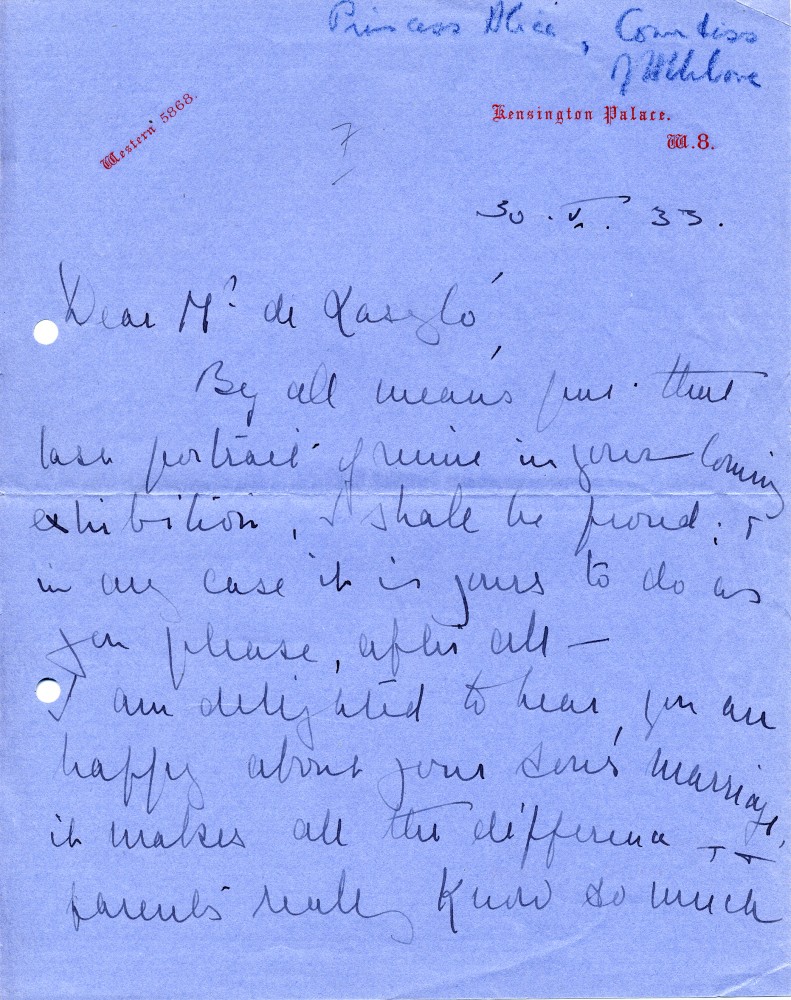 Princess Alice, Countess
of Athlone
Western 5868.
Kensington Palace.
W.8.
7
30.V.33.
Dear Mr. de László
By all means put that
last portrait of mine in your coming
exhibition, I shall be proud; &
in any case it is yours to do as
you please, after all —
I am delighted to hear you are
happy about your son's marriage,
it makes all the difference
parents really know so much